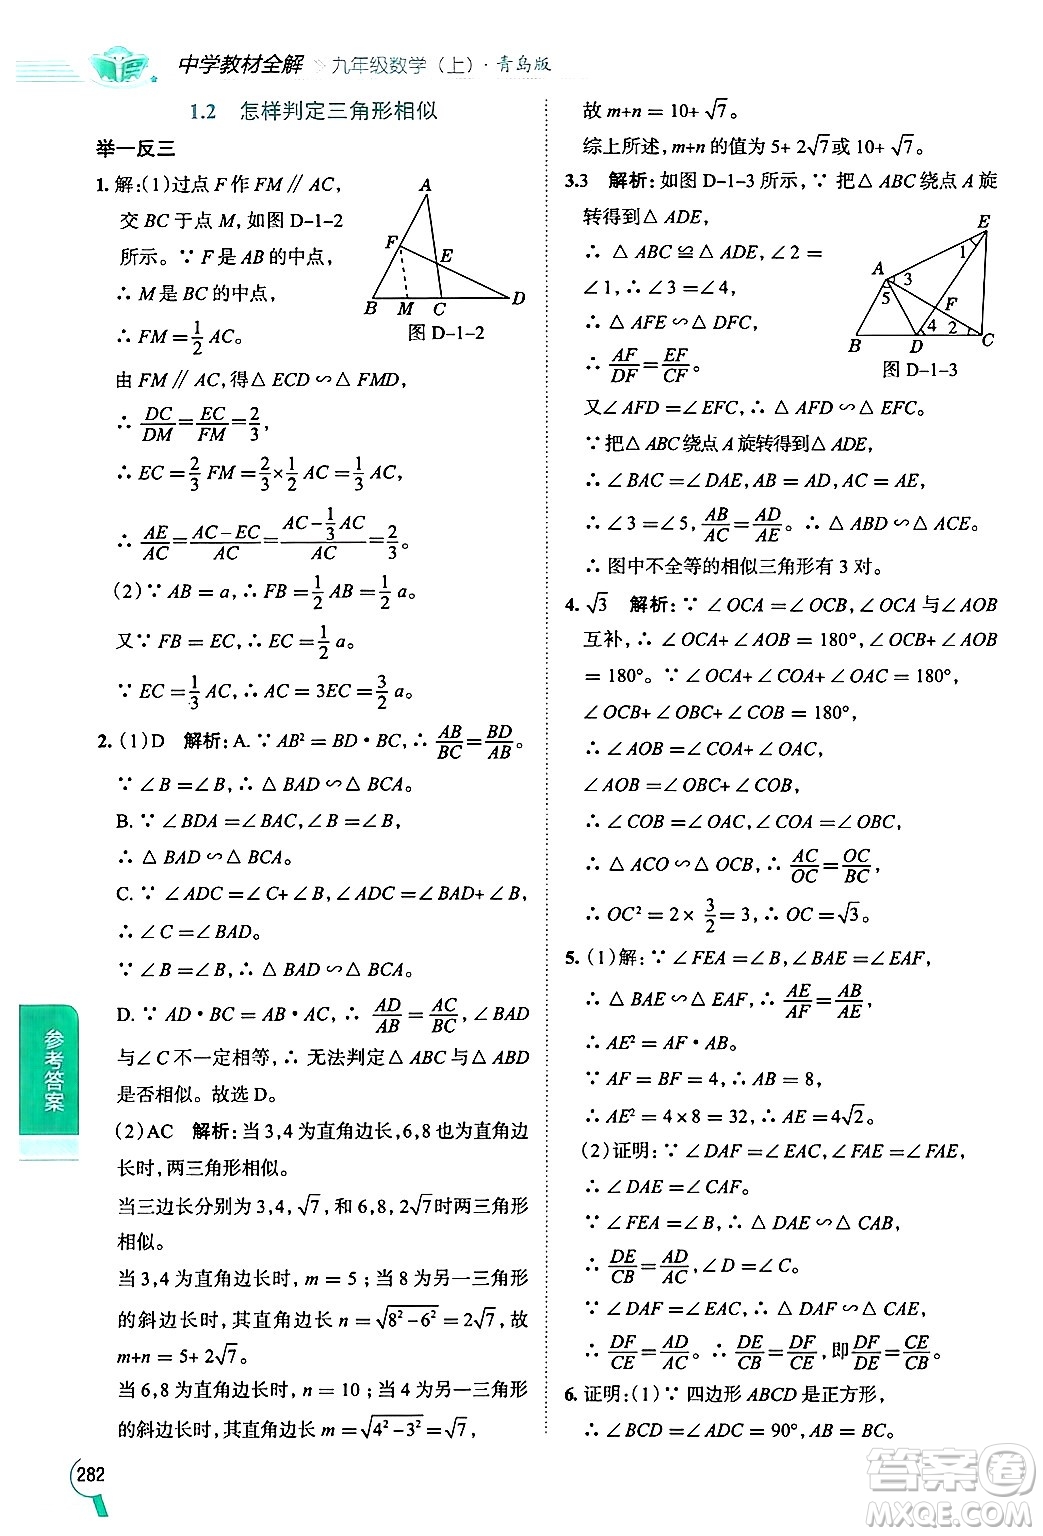 中学教材全解 九年级数学（上）·青岛版
1.2 怎样判定三角形相似
举一反三
1. 解:(1)过点 F 作 FM∥AC,
交 BC 于点 M,如图 D-1-2
所示。∵ F 是 AB 的中点,
∴ M 是 BC 的中点,
∴ FM=1/2 AC。
A
F
E
B M C D
图 D-1-2
由 FM∥AC,得△ECD∽△FMD,
∴ DC/DM=EC/FM=2/3,
∴ EC=2/3 FM=2/3×1/2 AC=1/3 AC,
∴ AE/AC=(AC-EC)/AC=(AC-1/3 AC)/AC=2/3。
(2)∵ AB=a,∴ FB=1/2 AB=1/2 a。
又∵ FB=EC,∴ EC=1/2 a。
∵ EC=1/3 AC,∴ AC=3EC=3/2 a。
2. (1)D 解析:A. ∵ AB²=BD·BC,∴ AB/BC=BD/AB。
∵ ∠B=∠B,∴ △BAD∽△BCA。
B. ∵ ∠BDA=∠BAC,∠B=∠B,
∴ △BAD∽△BCA。
C. ∵ ∠ADC=∠C+∠B,∠ADC=∠BAD+∠B,
∴ ∠C=∠BAD。
∵ ∠B=∠B,∴ △BAD∽△BCA。
D. ∵ AD·BC=AB·AC,∴ AD/AB=AC/BC,∠BAD
与∠C 不一定相等,∴ 无法判定△ABC与△ABD
是否相似。故选 D。
(2)AC 解析:当 3,4 为直角边长,6,8 也为直角边
长时,两三角形相似。
当三边长分别为 3,4,√7,和 6,8,2√7时两三角形
相似。
当 3,4 为直角边长时,m=5;当 8 为另一三角形
的斜边长时,其直角边长 n=√(8²-6²)=2√7,故
m+n=5+2√7。
当 6,8 为直角边长时,n=10;当 4 为另一三角形
的斜边长时,其直角边长 m=√(4²-3²)=√7,
故 m+n=10+√7。
综上所述,m+n 的值为 5+2√7或 10+√7。
3.3 解析:如图 D-1-3 所示,∵ 把△ABC绕点 A 旋
转得到△ADE,
∴ △ABC≌△ADE,∠2=
∠1,∴ ∠3=∠4,
∴ △AFE∽△DFC,
∴ AF/DF=EF/CF。
E
1
A 3
5
F
4 2
B D C
图 D-1-3
又∠AFD=∠EFC,∴ △AFD∽△EFC。
∵把△ABC绕点A旋转得到△ADE,
∴ ∠BAC=∠DAE,AB=AD,AC=AE,
∴ ∠3=∠5,AB/AC=AD/AE。∴ △ABD∽△ACE。
∴ 图中不全等的相似三角形有 3 对。
4. √3 解析:∵ ∠OCA=∠OCB,∠OCA与∠AOB
互补,∴ ∠OCA+∠AOB=180°,∠OCB+∠AOB
=180°。∵ ∠OCA+∠COA+∠OAC=180°,
∠OCB+∠OBC+∠COB=180°,
∴ ∠AOB=∠COA+∠OAC,
∠AOB=∠OBC+∠COB,
∴ ∠COB=∠OAC,∠COA=∠OBC,
∴ △ACO∽△OCB,∴ AC/OC=OC/BC,
∴ OC²=2×3/2=3,∴ OC=√3。
5. (1)解:∵ ∠FEA=∠B,∠BAE=∠EAF,
∴ △BAE∽△EAF,∴ AE/AF=AB/AE,
∴ AE²=AF·AB。
∵ AF=BF=4,∴ AB=8,
∴ AE²=4×8=32,∴ AE=4√2。
(2)证明:∵ ∠DAF=∠EAC,∠FAE=∠FAE,
∴ ∠DAE=∠CAF。
∵ ∠FEA=∠B,∴ △DAE∽△CAB,
∴ DE/CB=AD/AC,∠D=∠C。
∵ ∠DAF=∠EAC,∴ △DAF∽△CAE,
∴ DF/CE=AD/AC。∴ DE/CB=DF/CE,即DF/DE=CE/CB。
6. 证明:(1)∵ 四边形 ABCD 是正方形,
∴ ∠BCD=∠ADC=90°,AB=BC。
参考答案
282
答案圈
MXQE.COM